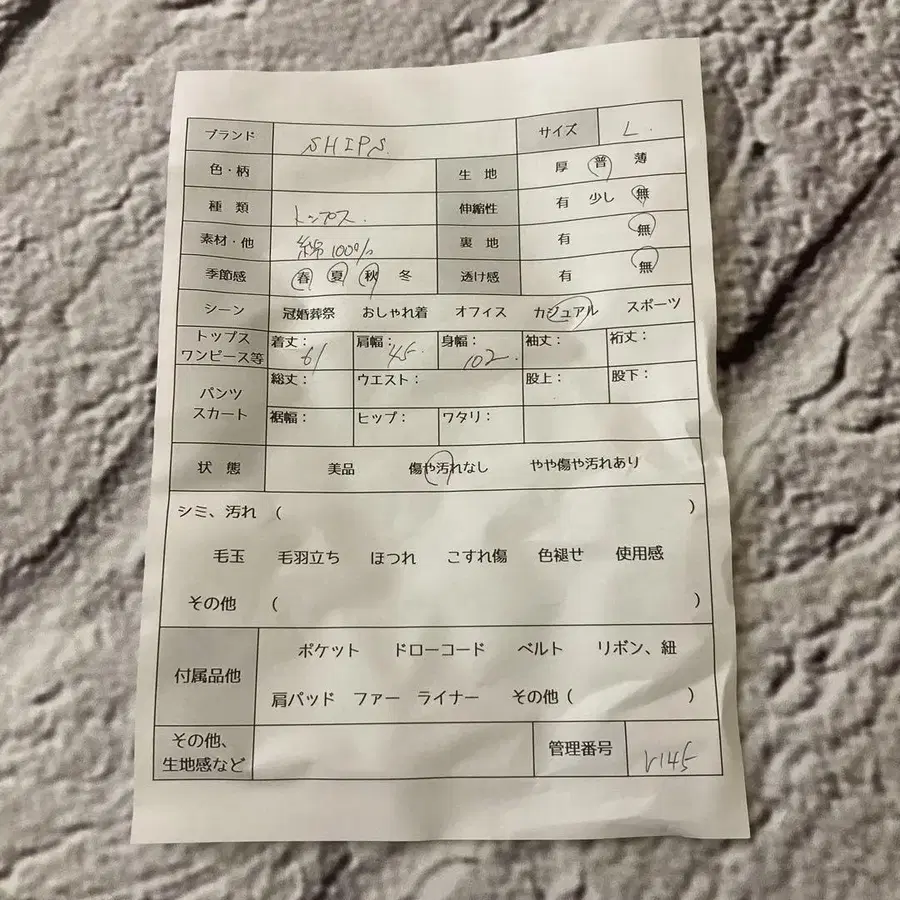 ブランド SHIPS. サイズ L.
色・柄 生 地 厚 普 薄
種 類 トップス. 伸縮性 有 少し 無
素材・他 綿100% 裏 地 有 無
季節感 春 夏 秋 冬 透け感 有 無
シーン 冠婚葬祭 おしゃれ着 オフィス カジュアル スポーツ
トップス
ワンピース等 着丈: 61 肩幅: 45. 身幅: 102. 袖丈: 裄丈:
パンツ
スカート 総丈: ウエスト: 股上: 股下:
裾幅: ヒップ: ワタリ:
状 態 美品 傷や汚れなし やや傷や汚れあり
シミ、汚れ ( )
毛玉 毛羽立ち ほつれ こすれ傷 色褪せ 使用感
その他 ( )
付属品他 ポケット ドローコード ベルト リボン、紐
肩パッド ファー ライナー その他 ( )
その他、
生地感など 管理番号 r145